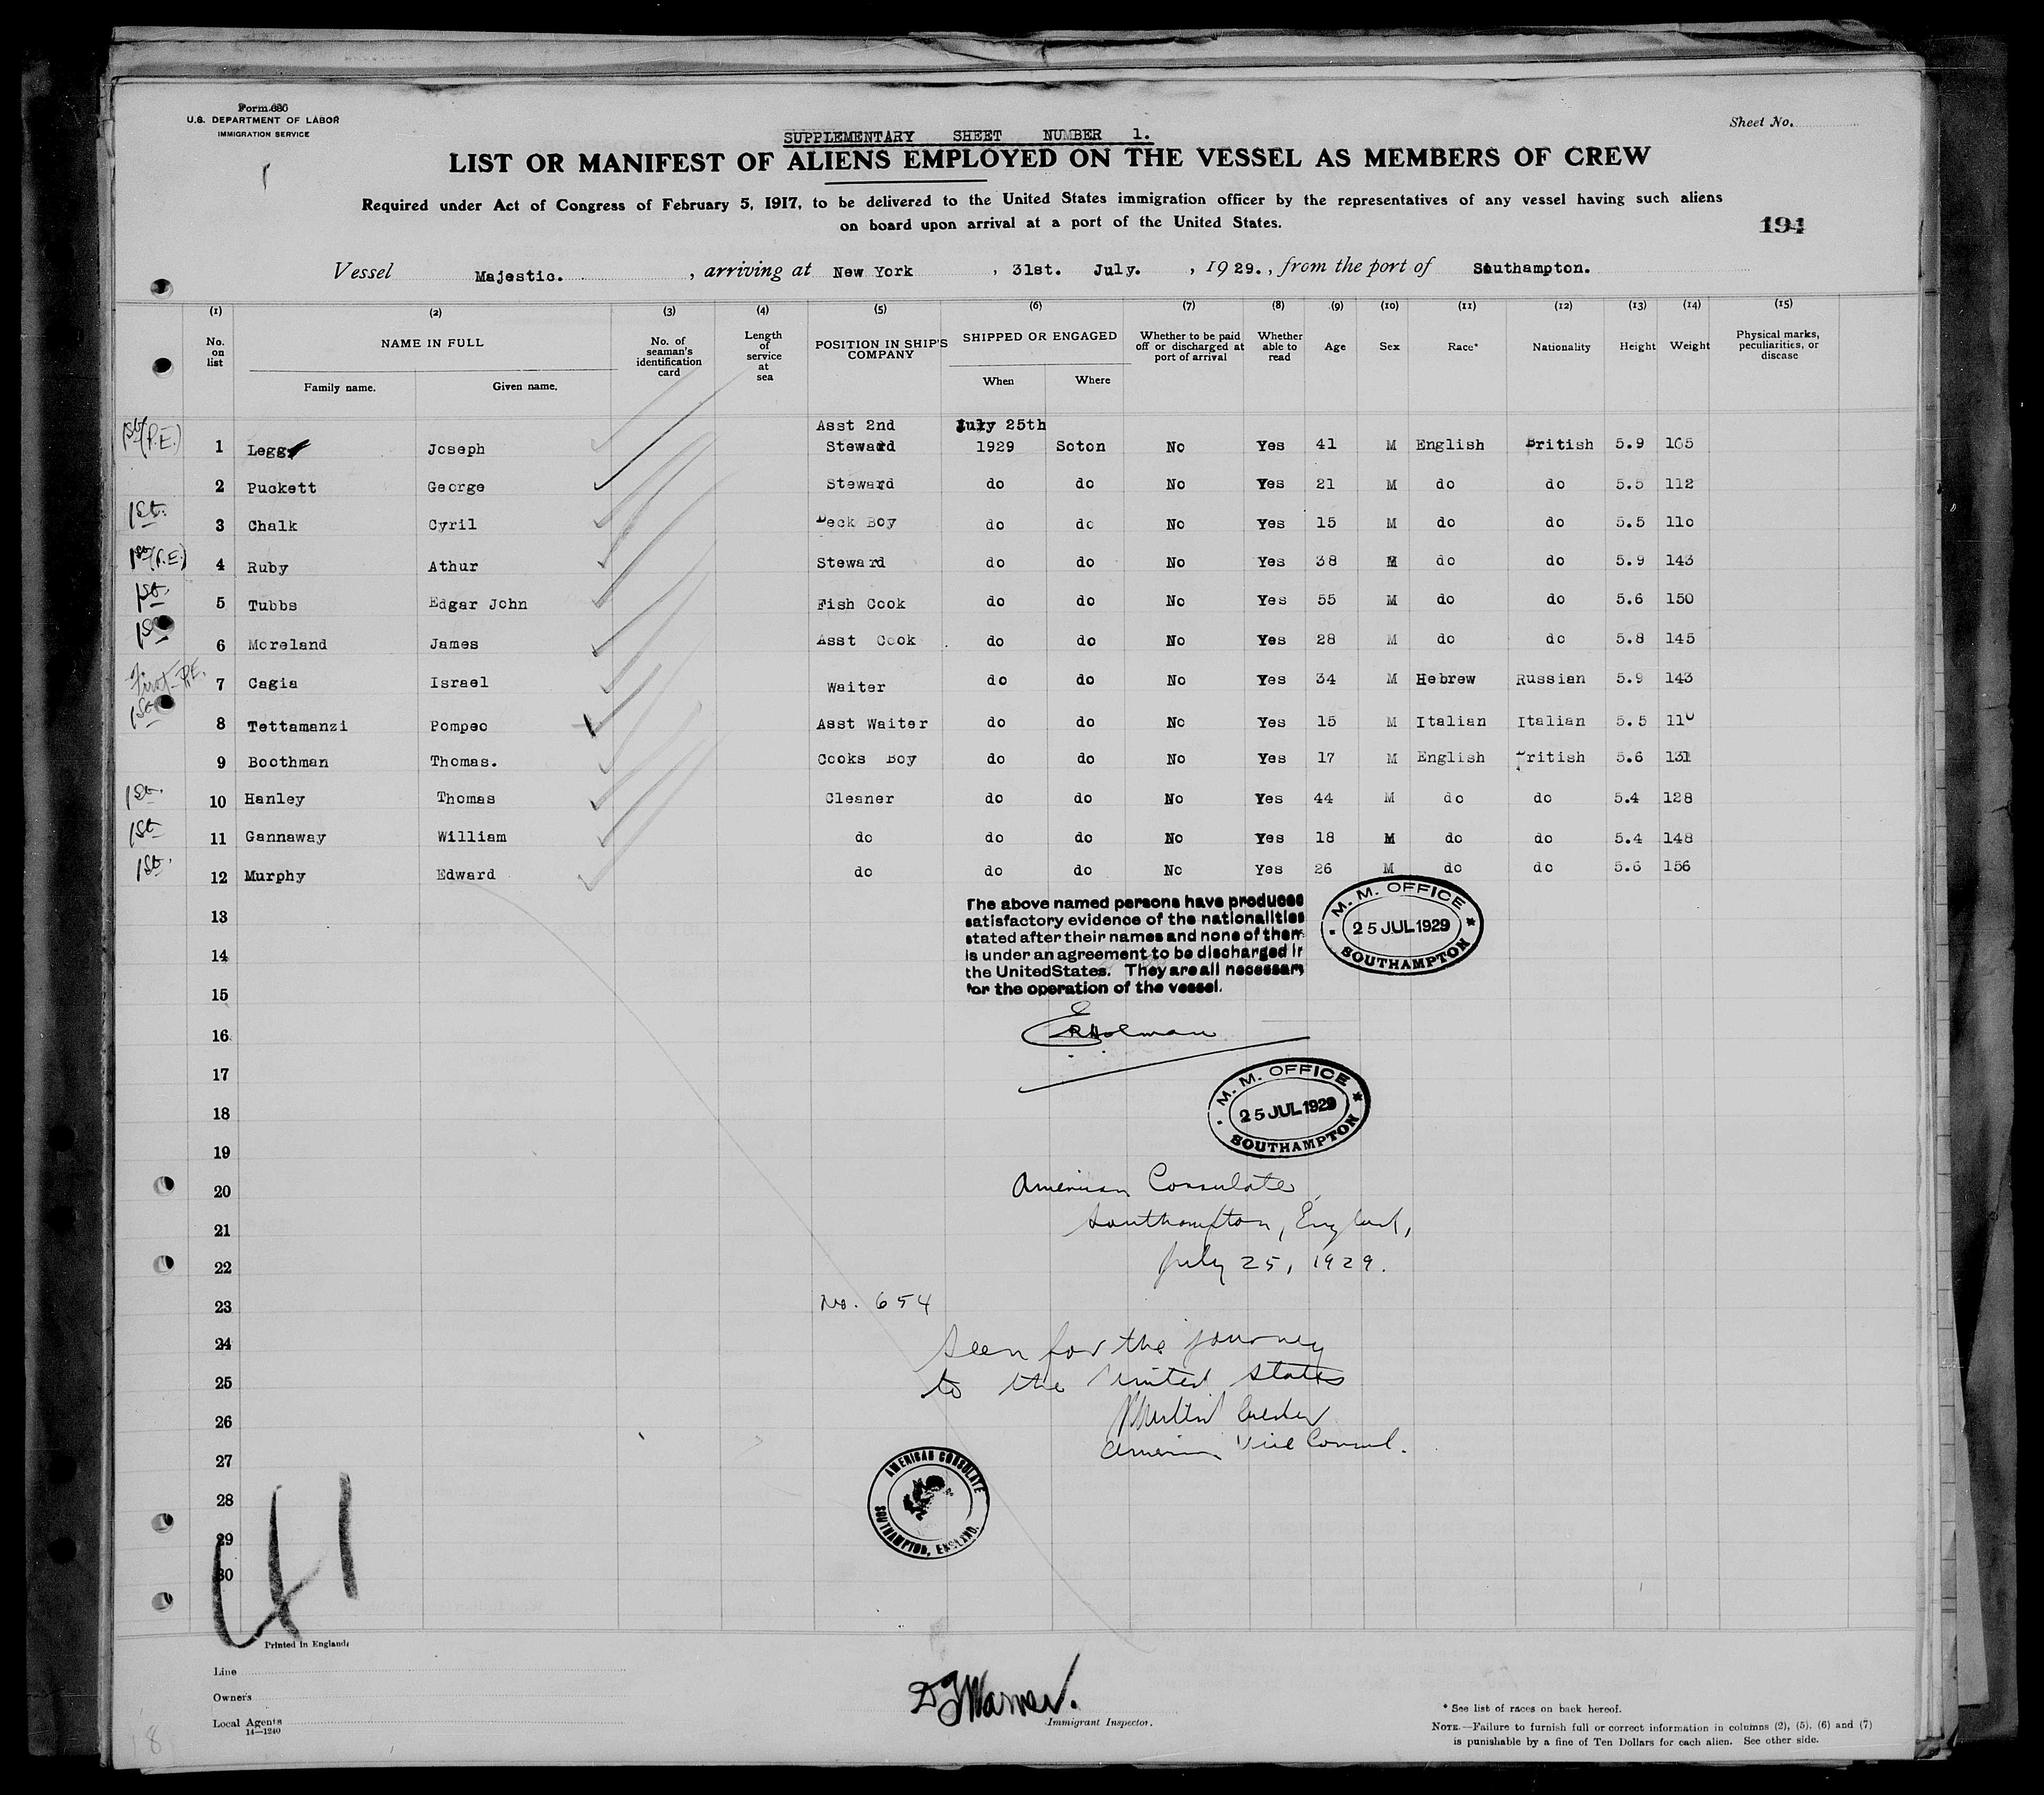 Form 680
U.S. DEPARTMENT OF LABOR
IMMIGRATION SERVICE
Sheet No.
SUPPLEMENTARY SHEET NUMBER 1.
LIST OR MANIFEST OF ALIENS EMPLOYED ON THE VESSEL AS MEMBERS OF CREW
Required under Act of Congress of February 5, 1917, to be delivered to the United States immigration officer by the representatives of any vessel having such aliens
on board upon arrival at a port of the United States.
194
Vessel Majestic. , arriving at New York , 31st. July. , 1929. , from the port of Southampton.
(1) (2) (3) (4) (5) (6) (7) (8) (9) (10) (11) (12) (13) (14) (15)
No. on list NAME IN FULL Family name. Given name. No. of seaman's identification card Length of service at sea POSITION IN SHIP'S COMPANY SHIPPED OR ENGAGED When Where Whether to be paid off or discharged at port of arrival Whether able to read Age Sex Race* Nationality Height Weight Physical marks, peculiarities, or disease
1st (P.E.) 1 Legg Joseph Asst 2nd Steward July 25th 1929 Soton No Yes 41 M English British 5.9 165
2 Puckett George Steward do do No Yes 21 M do do 5.5 112
1st. 3 Chalk Cyril Deck Boy do do No Yes 15 M do do 5.5 110
1st (P.E.) 4 Ruby Athur Steward do do No Yes 38 M do do 5.9 143
1st. 5 Tubbs Edgar John Fish Cook do do No Yes 55 M do do 5.6 150
1st 6 Moreland James Asst Cook do do No Yes 28 M do do 5.8 145
First P.E. 7 Cagia Israel Waiter do do No Yes 34 M Hebrew Russian 5.9 143
1st 8 Tettamanzi Pompeo Asst Waiter do do No Yes 15 M Italian Italian 5.5 110
9 Boothman Thomas. Cooks Boy do do No Yes 17 M English British 5.6 131
1st. 10 Hanley Thomas Cleaner do do No Yes 44 M do do 5.4 128
1st 11 Gannaway William do do do No Yes 18 M do do 5.4 148
1st. 12 Murphy Edward do do do No Yes 26 M do do 5.6 156
13
The above named persons have produced
satisfactory evidence of the nationalities
stated after their names and none of them
is under an agreement to be discharged in
the United States. They are all necessary
for the operation of the vessel.
M. M. OFFICE
25 JUL 1929
SOUTHAMPTON
14
15
16
Holman
17
M. M. OFFICE
25 JUL 1929
SOUTHAMPTON
18
19
20
American Consulate,
21
Southampton, England,
22
July 25, 1929.
23
No. 654
24
Seen for the journey
25
to the United States
26
American Vice Consul.
27
AMERICAN CONSULATE
SOUTHAMPTON, ENGLAND.
28
29
30
41
Printed in England
Line
Owners
Local Agents
14—1240
8
Warner.
Immigrant Inspector.
* See list of races on back hereof.
NOTE.—Failure to furnish full or correct information in columns (2), (5), (6) and (7)
is punishable by a fine of Ten Dollars for each alien. See other side.